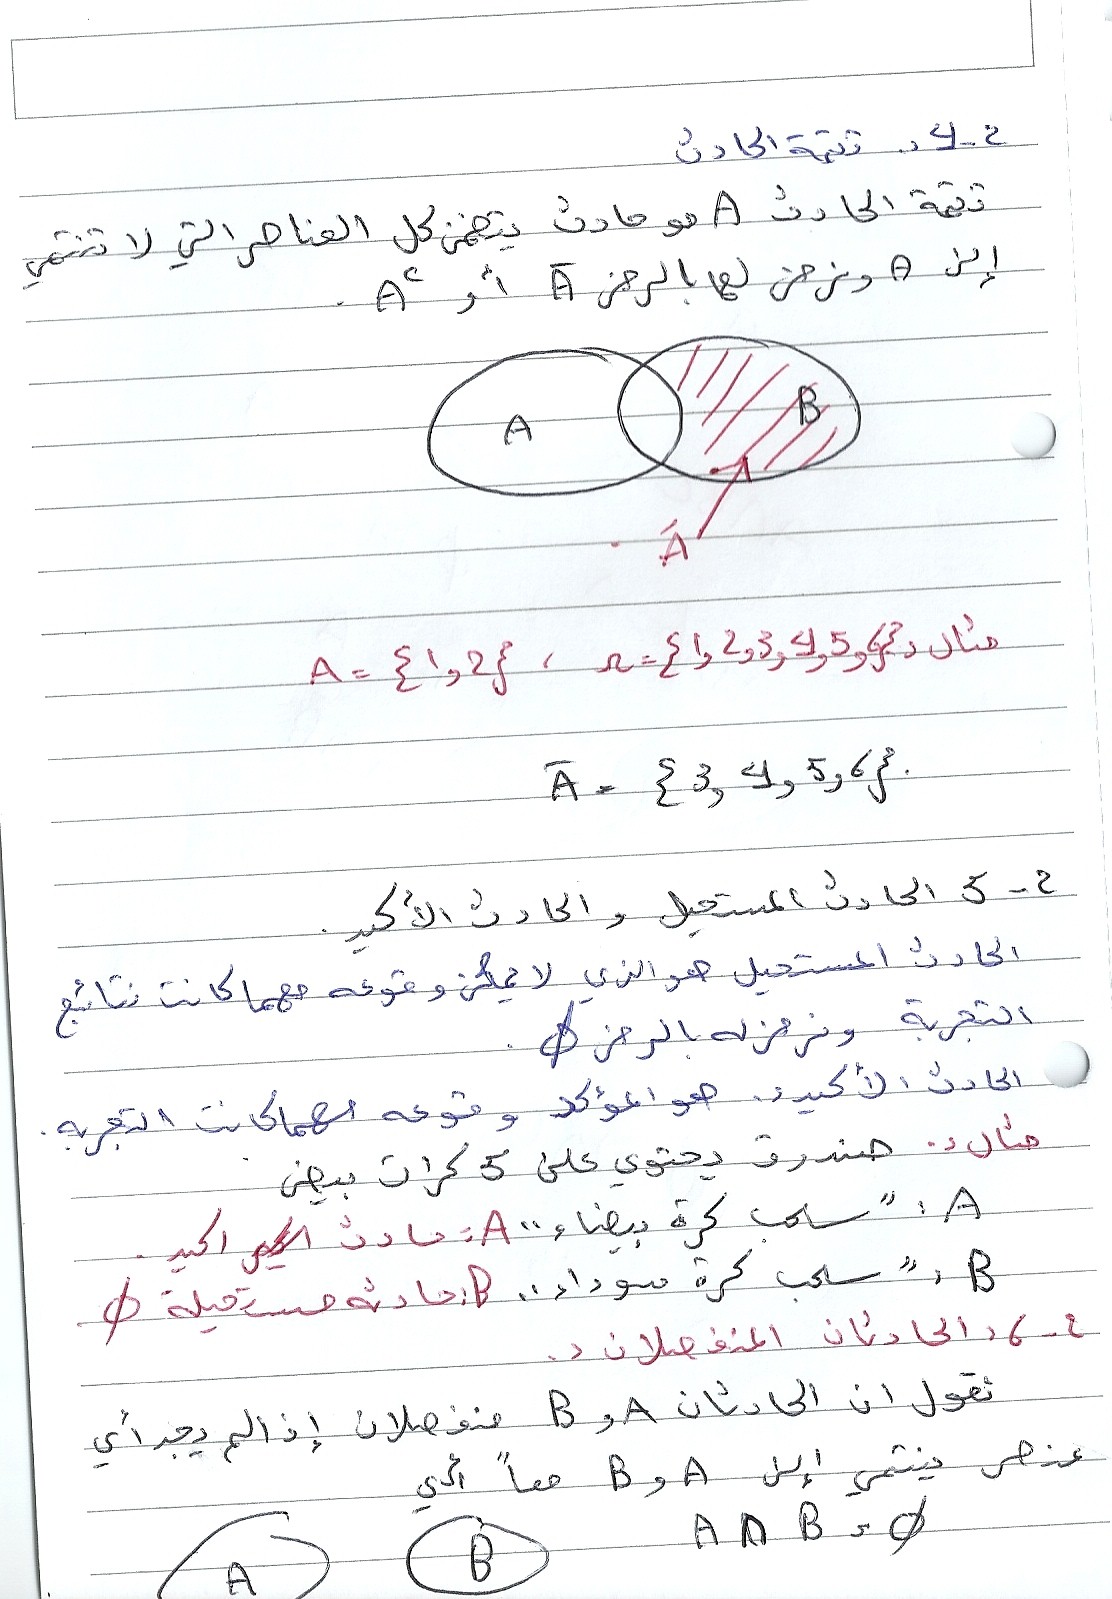 2-4: تتمة الحادث
تتمة الحادث A هو حادث يتضمن كل العناصر التي لا تنتمي
إلى A ونرمز لها بالرمز Ā أو Aᶜ.
A B
Ā
مثال: Ω={1,2,3,4,5,6} ، A = {1,2}
Ā = {3,4,5,6}.
2-5 الحادث المستحيل والحادث الأكيد.
الحادث المستحيل هو الذي لا يمكن وقوعه مهما كانت نتائج
التجربة ونرمز له بالرمز ∅.
الحادث الأكيد: هو المؤكد وقوعه مهما كانت التجربه.
مثال: صندوق يحتوي على 5 كرات بيض
A: "سحب كرة بيضاء" A: حادث اكيد.
B: "سحب كرة سوداء" B: حادثه مستحيلة ∅
2-6: الحادثان المنفصلان:
نقول ان الحادثان A و B منفصلان إذا لم يوجد أي
عنصر ينتمي إلى A و B معاً أي
A ∩ B = ∅
A B